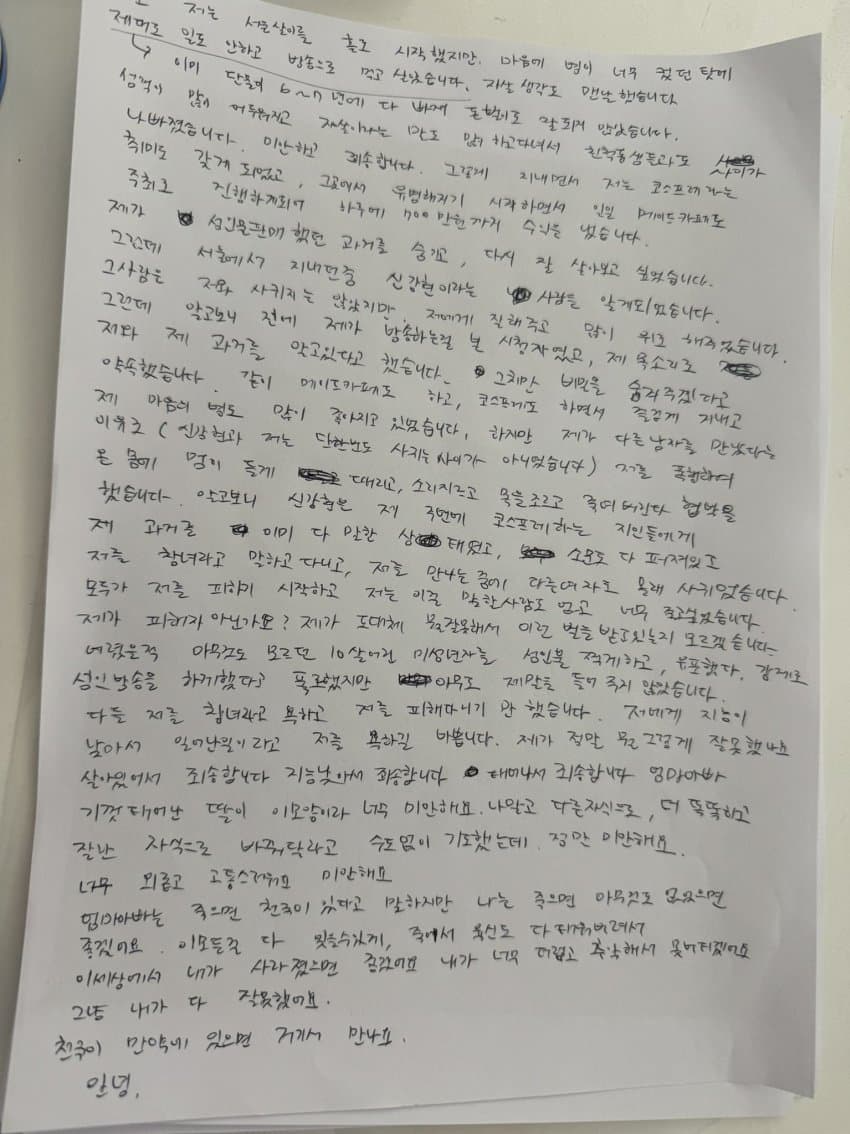 저는 서울살이를 홀로 시작했지만, 마음에 병이 너무 컸던 탓에
제대로 일도 안하고 방송으로 먹고 살았습니다. 자살 생각도 맨날 했습니다
이미 단톡에 6~7년에 다 빠께 돌변 말 되지 않았습니다.
성격이 많이 어두워지고 자살이라는 말도 많이 하고다녀서 친척동생들과도 사이가
나빠졌습니다. 미안하고 죄송합니다. 그렇게 지내면서 저는 코스프레라는
취미도 갖게 되었고, 그곳에서 유명해지기 시작하면서 일일 메이드카페도
주최로 진행하게되어 하루에 700만원까지 수익을 냈습니다.
제가 성인물판매 했던 과거를 숨기고, 다시 잘 살아보고 싶었습니다.
그런데 서울에서 지내던중 신강현이라는 사람을 알게되었습니다.
그사람은 저와 사귀지는 않았지만, 저에게 잘해주고 많이 위로 해주었습니다.
그런데 알고보니 전에 제가 방송하는걸 본 시청자였고, 제 목소리로
저와 제 과거를 알고있다고 했습니다. 그치만 비밀을 숨겨주겠다고
약속했습니다. 같이 메이드카페도 하고, 코스프레도 하면서 즐겁게 지내고
제 마음의 병도 많이 좋아지고 있었습니다, 하지만 제가 다른남자를 만났다는
이유로 (신강현과 저는 단한번도 사귀는사이가 아니었습니다) 저를 폭행하여
온 몸에 멍이 들게 때리고, 소리지르고 목을조르고 죽여버린다 협박을
했습니다. 알고보니 신강현은 제 주변에 코스프레하는 지인들에게
제 과거를 이미 다 말한 상태였고, 소문도 다 퍼져있고
저를 창녀라고 말하고 다니고, 저를 만나는 중에 다른여자도 몰래 사귀었습니다.
모두가 저를 피하기 시작하고 저는 이걸 말한사람도 없고 너무 죽고싶었습니다.
제가 피해자 아닌가요? 제가 도대체 뭘잘못해서 이런 벌을 받고있는지 모르겠습니다
어렸을적 아무것도 모르던 10살어린 미성년자를 성인물 찍게하고, 유포했다, 강제로
성인방송을 하게했다고 폭로했지만 아무도 제말을 들어주지 않았습니다.
다들 저를 창녀라고 욕하고 저를 피해다니기만 했습니다. 저에게 지능이
낮아서 일어난일이라고 저를 욕하길 바쁩니다. 제가 정말 뭘 그렇게 잘못했나요
살아있어서 죄송합니다 지능낮아서 죄송합니다 태어나서 죄송합니다 엄마아빠
기껏태어난 딸이 이모양이라 너무 미안해요. 나말고 다른자식으로, 더 똑똑하고
잘난 자식으로 바꿔달라고 수도없이 기도했는데. 정말 미안해요.
너무 외롭고 고통스러워요 미안해요
엄마아빠는 죽으면 천국이 있다고 말하지만 나는 죽으면 아무것도 없었으면
좋겠어요. 이모든걸 다 잊을수있게, 죽어서 육신도 다 태워버려서
이세상에서 내가 사라졌으면 좋겠어요 내가 너무 더럽고 추악해서 못버티겠어요
그냥 내가 다 잘못했어요.
천국이 만약에 있으면 거기서 만나요.
안녕.